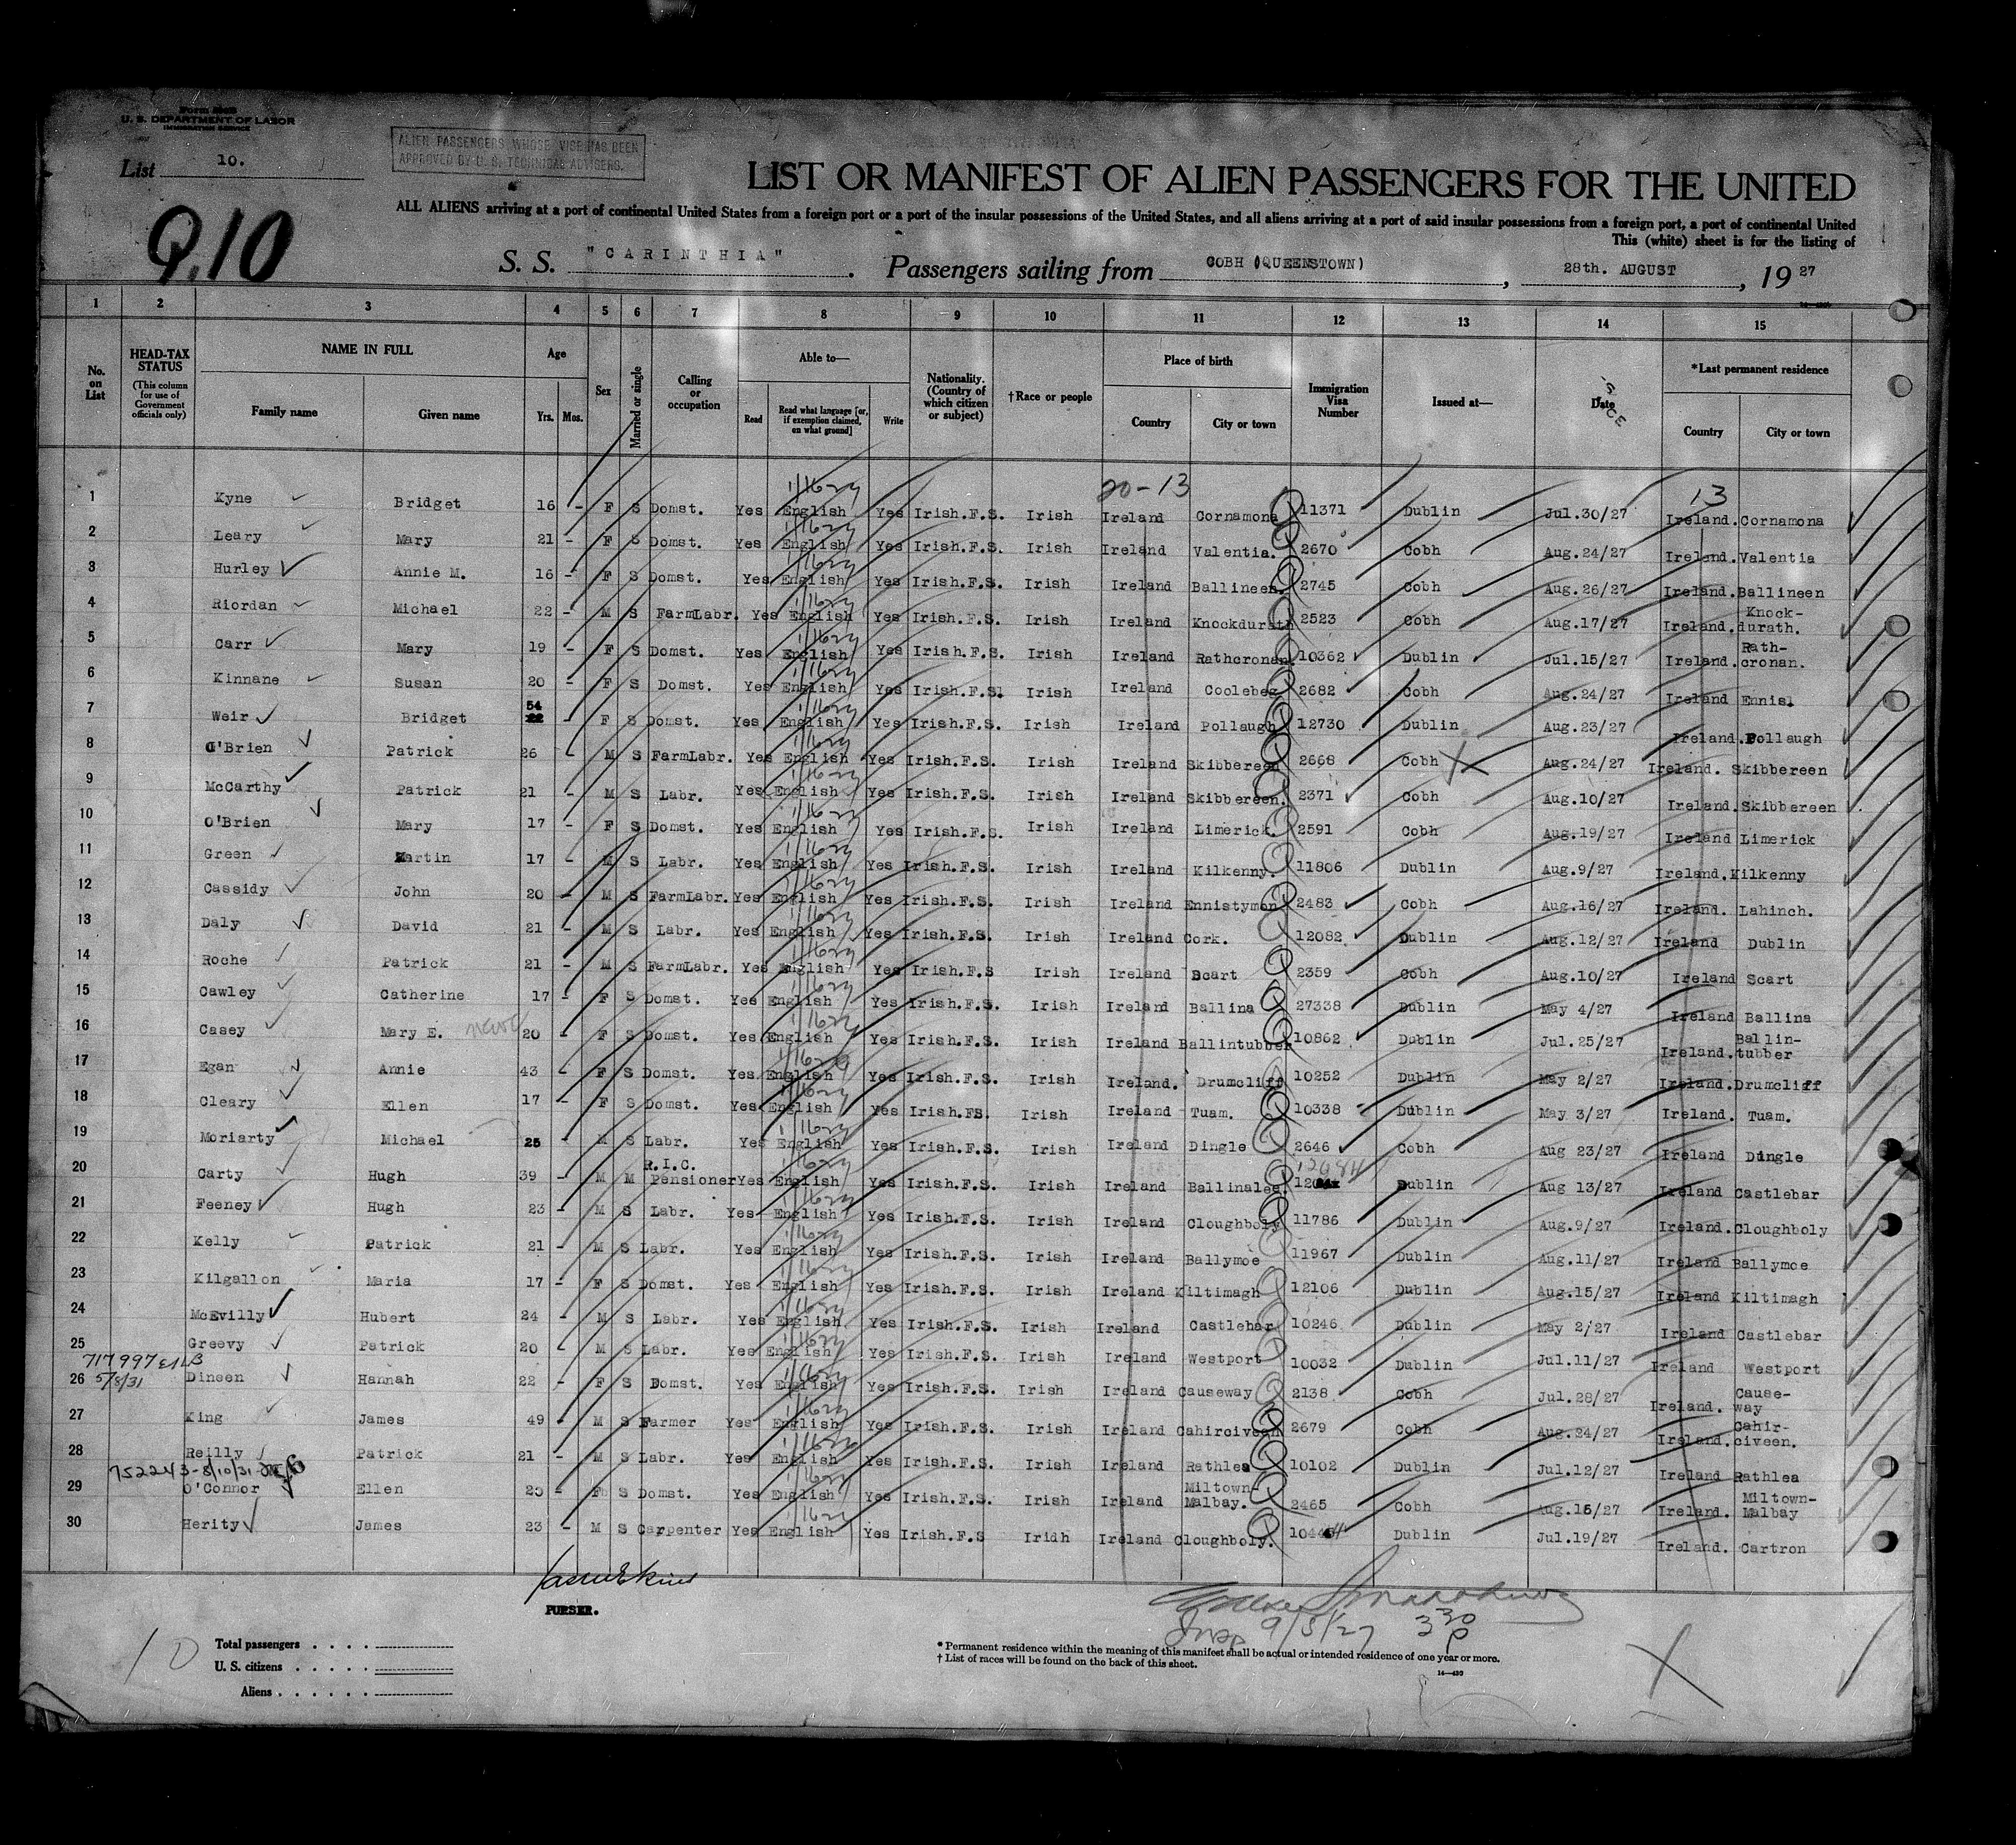 Form 500B
U. S. DEPARTMENT OF LABOR
IMMIGRATION SERVICE
List 10.
ALIEN PASSENGERS WHOSE VISE HAS BEEN
APPROVED BY U. S. TECHNICAL ADVISERS.
Q.10
LIST OR MANIFEST OF ALIEN PASSENGERS FOR THE UNITED
ALL ALIENS arriving at a port of continental United States from a foreign port or a port of the insular possessions of the United States, and all aliens arriving at a port of said insular possessions from a foreign port, a port of continental United
This (white) sheet is for the listing of
S. S. "CARINTHIA". Passengers sailing from COBH (QUEENSTOWN), 28th. AUGUST, 1927
1 2 3 4 5 6 7 8 9 10 11 12 13 14 15
No. on List
HEAD-TAX STATUS (This column for use of Government officials only)
NAME IN FULL Family name Given name
Age Yrs. Mos.
Sex
Married or single
Calling or occupation
Able to— Read Read what language [or, if exemption claimed, on what ground] Write
Nationality. (Country of which citizen or subject)
†Race or people
Place of birth Country City or town
Immigration Visa Number
Issued at—
Date
*Last permanent residence Country City or town
20-13 13
1 Kyne Bridget 16 - F S Domst. Yes English Yes Irish.F.S. Irish Ireland Cornamona 11371 Dublin Jul.30/27 Ireland. Cornamona
2 Leary Mary 21 - F S Domst. Yes English Yes Irish.F.S. Irish Ireland Valentia. 2670 Cobh Aug.24/27 Ireland. Valentia
3 Hurley Annie M. 16 - F S Domst. Yes English Yes Irish.F.S. Irish Ireland Ballineen. 2745 Cobh Aug.26/27 Ireland. Ballineen
4 Riordan Michael 22 - M S FarmLabr. Yes English Yes Irish.F.S. Irish Ireland Knockdurath 2523 Cobh Aug.17/27 Ireland. Knock-durath.
5 Carr Mary 19 - F S Domst. Yes English Yes Irish.F.S. Irish Ireland Rathcronan. 10362 Dublin Jul.15/27 Ireland. Rath-cronan.
6 Kinnane Susan 20 - F S Domst. Yes English Yes Irish.F.S. Irish Ireland Coolebeg 2682 Cobh Aug.24/27 Ireland Ennis.
7 Weir Bridget 54 22 - F S Domst. Yes English Yes Irish.F.S. Irish Ireland Pollaugh 12730 Dublin Aug.23/27 Ireland. Pollaugh
8 O'Brien Patrick 26 - M S FarmLabr. Yes English Yes Irish.F.S. Irish Ireland Skibbereen 2668 Cobh Aug.24/27 Ireland. Skibbereen
9 McCarthy Patrick 21 - M S Labr. Yes English Yes Irish.F.S. Irish Ireland Skibbereen. 2371 Cobh Aug.10/27 Ireland. Skibbereen
10 O'Brien Mary 17 - F S Domst. Yes English Yes Irish.F.S. Irish Ireland Limerick. 2591 Cobh Aug.19/27 Ireland Limerick
11 Green Martin 17 - M S Labr. Yes English Yes Irish.F.S. Irish Ireland Kilkenny. 11806 Dublin Aug.9/27 Ireland. Kilkenny
12 Cassidy John 20 - M S FarmLabr. Yes English Yes Irish.F.S. Irish Ireland Ennistymon 2483 Cobh Aug.16/27 Ireland. Lahinch.
13 Daly David 21 - M S Labr. Yes English Yes Irish.F.S. Irish Ireland Cork. 12082 Dublin Aug.12/27 Ireland Dublin
14 Roche Patrick 21 - M S FarmLabr. Yes English Yes Irish.F.S Irish Ireland Scart 2359 Cobh Aug.10/27 Ireland Scart
15 Cawley Catherine 17 - F S Domst. Yes English Yes Irish.F.S. Irish Ireland Ballina 27338 Dublin May 4/27 Ireland Ballina
16 Casey Mary E. 20 - F S Domst. Yes English Yes Irish.F.S. Irish Ireland Ballintubber 10862 Dublin Jul.25/27 Ireland. Ballin-tubber
17 Egan Annie 43 - F S Domst. Yes English Yes Irish.F.S. Irish Ireland. Drumcliff 10252 Dublin May 2/27 Ireland. Drumcliff
18 Cleary Ellen 17 - F S Domst. Yes English Yes Irish.FS. Irish Ireland Tuam. 10338 Dublin May 3/27 Ireland. Tuam.
19 Moriarty Michael 25 - M S Labr. Yes English Yes Irish.F.S. Irish Ireland Dingle 2646 Cobh Aug 23/27 Ireland Dingle
20 Carty Hugh 39 - M M R.I.C. Pensioner Yes English Yes Irish.F.S. Irish Ireland Ballinalee. 12084 Dublin Aug 13/27 Ireland Castlebar
21 Feeney Hugh 23 - M S Labr. Yes English Yes Irish.F.S. Irish Ireland Cloughboly 11786 Dublin Aug.9/27 Ireland. Cloughboly
22 Kelly Patrick 21 - M S Labr. Yes English Yes Irish.F.S. Irish Ireland Ballymoe 11967 Dublin Aug.11/27 Ireland Ballymoe
23 Kilgallon Maria 17 - F S Domst. Yes English Yes Irish.F.S. Irish Ireland Kiltimagh 12106 Dublin Aug.15/27 Ireland Kiltimagh
24 McEvilly Hubert 24 - M S Labr. Yes English Yes Irish.F.S. Irish Ireland Castlebar 10246 Dublin May 2/27 Ireland Castlebar
25 Greevy Patrick 20 - M S Labr. Yes English Yes Irish.F.S. Irish Ireland Westport 10032 Dublin Jul.11/27 Ireland Westport
717997
5/8/31
26 Dineen Hannah 22 - F S Domst. Yes English Yes Irish.F.S. Irish Ireland Causeway 2138 Cobh Jul.28/27 Ireland. Cause-way
27 King James 49 - M S Farmer Yes English Yes Irish.F.S. Irish Ireland Cahirciveen 2679 Cobh Aug.24/27 Ireland. Cahir-civeen.
28 Reilly Patrick 21 - M S Labr. Yes English Yes Irish.F.S. Irish Ireland Rathlea 10102 Dublin Jul.12/27 Ireland Rathlea
752243-8/10/31
29 O'Connor Ellen 25 - F S Domst. Yes English Yes Irish.F.S. Irish Ireland Miltown-Malbay. 2465 Cobh Aug.15/27 Ireland. Miltown-Malbay
30 Herity James 23 - M S Carpenter Yes English Yes Irish.F.S Iridh Ireland Cloughboly. 10444 Dublin Jul.19/27 Ireland. Cartron
PURSER.
Insp 9/5/27 3 30 P
10
Total passengers
U. S. citizens
Aliens
* Permanent residence within the meaning of this manifest shall be actual or intended residence of one year or more.
† List of races will be found on the back of this sheet.
14—430